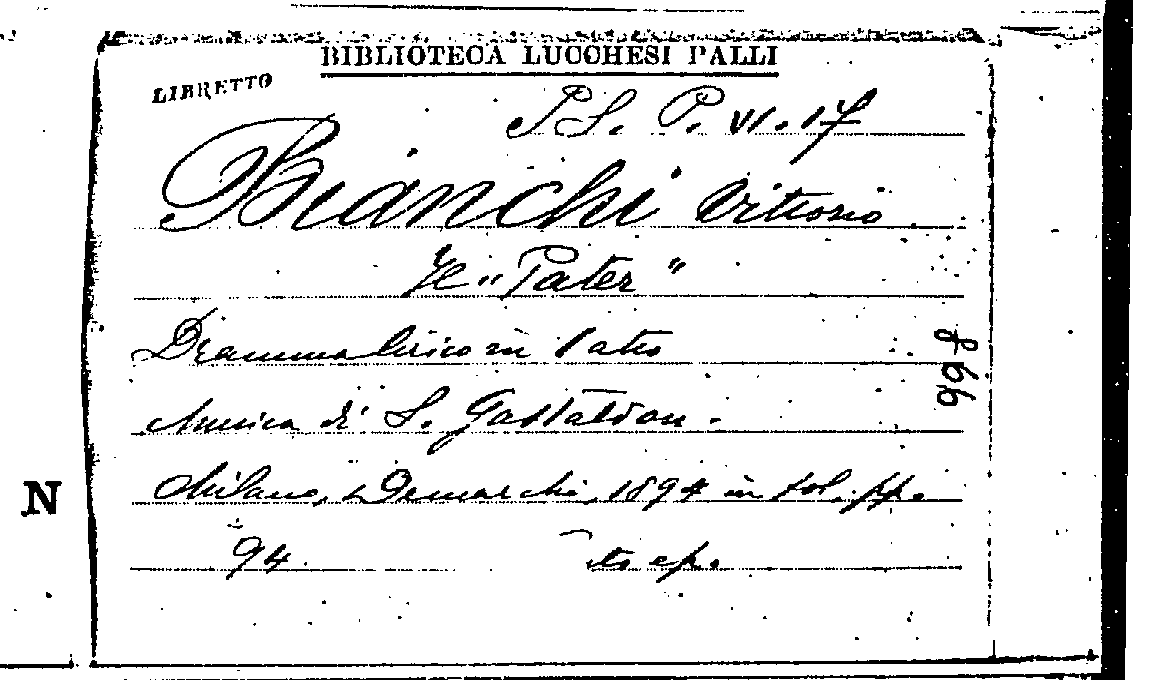 BIBLIOTECA LUCCHESI PALLI
LIBRETTO
P. VI. 17
Bianchi Vittorio
Il "Pater"
Dramma lirico in 1 atto
Musica di S. Gastaldon.
Milano, Demarchi, 1894 in fol. pp.
94.
998
N